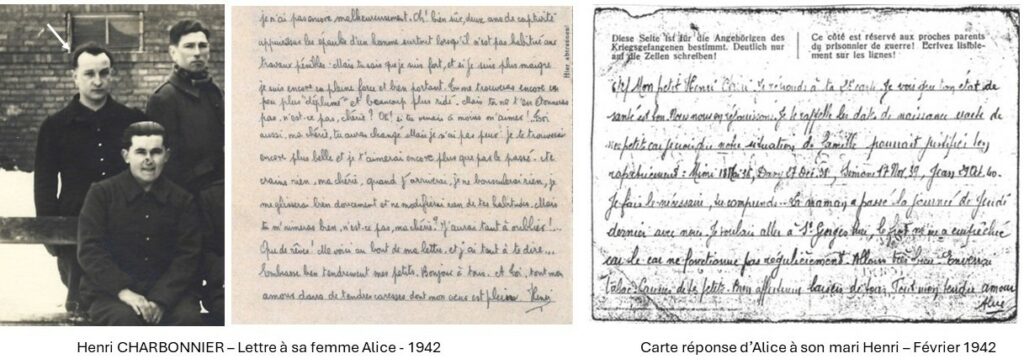 je n'ai pas encore malheureusement. Oh! bien sûr, deux ans de captivité
les épaules d'un homme surtout lorsqu'il n'est pas habitué aux
travaux pénibles. Mais tu sais que je suis fort, et si je suis plus maigre
je suis encore en pleine force et bien portant. Tu me trouveras encore un
peu plus "déplumé" et beaucoup plus ridé. Mais tu ne t'en étonneras
pas, n'est-ce pas, chérie? Oh! si tu venais à moins m'aimer! Toi
aussi, ma chérie, tu auras changé. Mais je n'ai pas peur. Je te trouverai
encore plus belle et je t'aimerai encore plus que par le passé. Ne
crains rien, ma chérie, quand j'arriverai, je ne bousculerai rien, je
me glisserai bien doucement et ne modifierai rien de tes habitudes. Mais
tu m'aimeras bien, n'est-ce pas, ma chérie? J'aurai tant à oublier!...
Que de rêves! Me voici au bout de ma lettre, et j'ai tant à te dire...
Embrasse bien tendrement mes petits. Bonjour à tous. A toi, tout mon
amour dans de tendres caresses dont mon cœur est plein. Henri
Hier abtrennen!
Diese Seite ist für die Angehörigen des
Kriegsgefangenen bestimmt. Deutlich nur
auf die Zeilen schreiben!
Ce côté est réservé aux proches parents
du prisonnier de guerre! Ecrivez lisible-
ment sur les lignes!
Mon petit Henri Chéri. Je réponds à ta carte. Je vois que ton état de
santé est bon. Nous nous en réjouissons. Je te rappelle les dates de naissance exacte de
nos petits car je crois que notre situation de famille pourrait justifier ton
rapatriement: Mimi 36, Dany 27 Oct. 38, Simone 17 Nov. 39, Jean Oct. 40.
Je fais le nécessaire, tu comprends... Ta maman a passé la journée de jeudi
dernier avec nous. Je voulais aller à St Georges mais le froid m'en a empêchée
car le car ne fonctionne pas régulièrement. Allons
Tabac. de tes petits. Bien affectueux de tous. Tout mon tendre amour
Alice
Henri CHARBONNIER – Lettre à sa femme Alice - 1942
Carte réponse d'Alice à son mari Henri – Février 1942